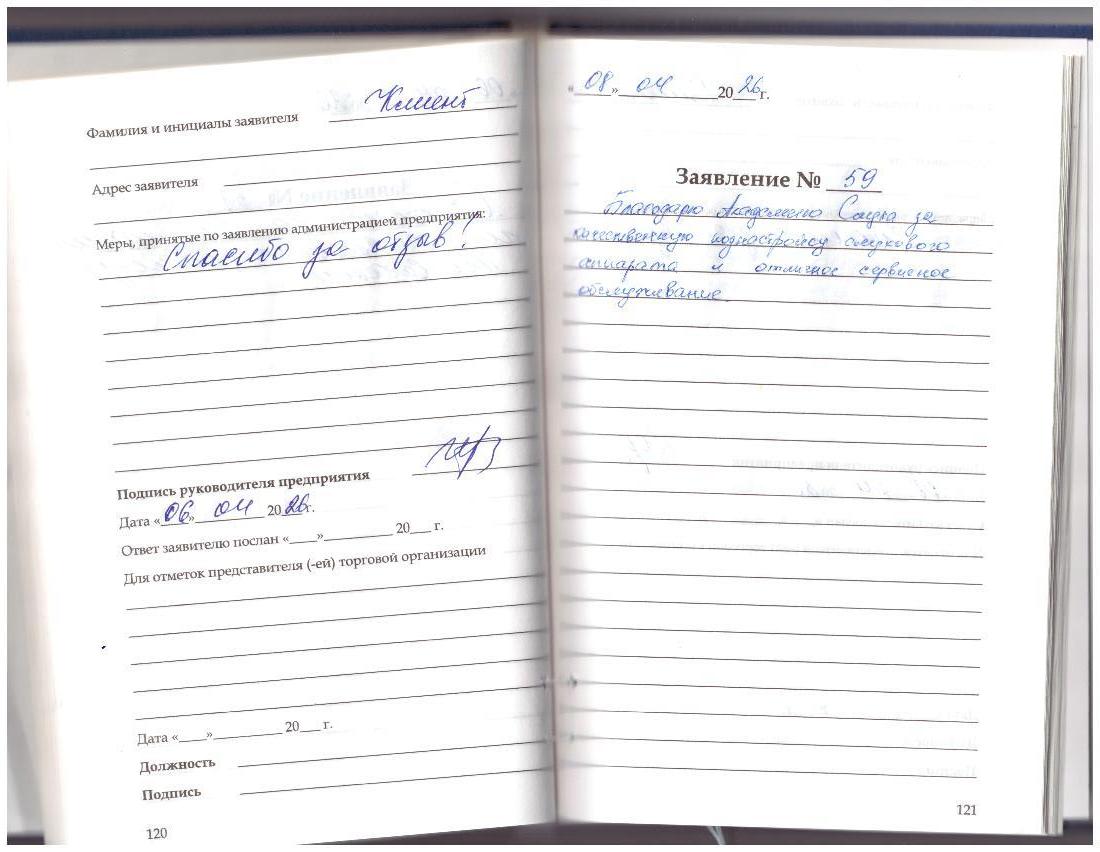 Фамилия и инициалы заявителя Клиент
Адрес заявителя
Меры, принятые по заявлению администрацией предприятия:
Спасибо за отзыв!
Подпись руководителя предприятия
Дата «06» 04 2026г.
Ответ заявителю послан «___»__________ 20___ г.
Для отметок представителя (-ей) торговой организации
Дата «____»__________ 20___ г.
Должность
Подпись
120
«08» 04 2026 г.
Заявление № 59
Благодарю Академию Слуха за
качественную поднастройку слухового
аппарата и отличное сервисное
обслуживание
121